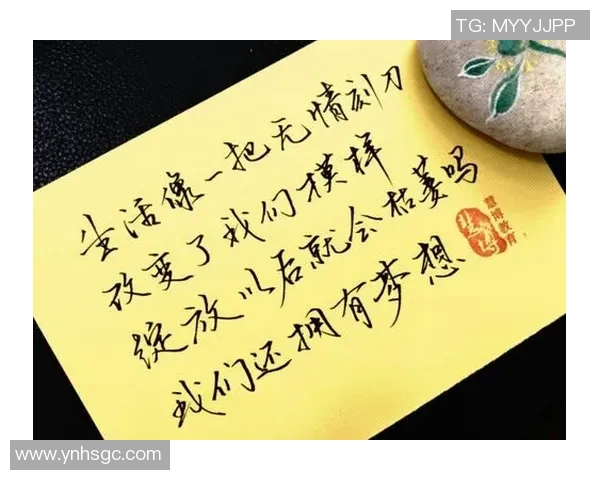 TG: MYYJJPP
生活像一把无情刻刀
改变了我们模样
绽放以后就会枯萎吗
我们还拥有梦想
慧博教育
www.ynhsgc.com